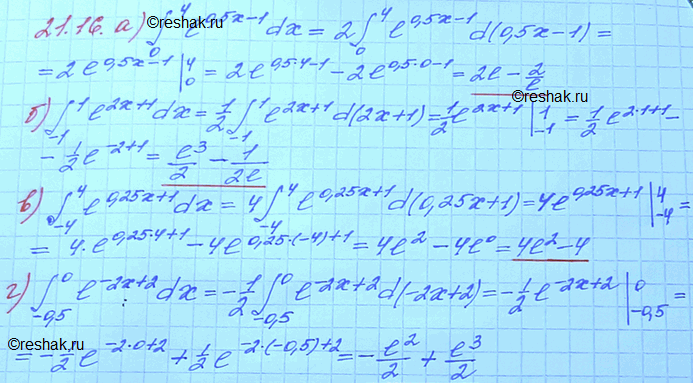 ©reshak.ru
21.16. а) ∫₀⁴ e^(0,5x−1) dx = 2 ∫₀⁴ e^(0,5x−1) d(0,5x−1) =
= 2e^(0,5x−1) |₀⁴ = 2e^(0,5·4−1) − 2e^(0,5·0−1) = 2e − 2/e
б) ∫₋₁¹ e^(2x+1) dx = 1/2 ∫₋₁¹ e^(2x+1) d(2x+1) = 1/2 e^(2x+1) |₋₁¹ = 1/2 e^(2·1+1) −
− 1/2 e^(−2+1) = e³/2 − 1/(2e)
в) ∫₋₄⁴ e^(0,25x+1) dx = 4 ∫₋₄⁴ e^(0,25x+1) d(0,25x+1) = 4e^(0,25x+1) |₋₄⁴ =
= 4·e^(0,25·4+1) − 4e^(0,25·(−4)+1) = 4e² − 4e⁰ = 4e² − 4
г) ∫₋₀,₅⁰ e^(−2x+2) dx = −1/2 ∫₋₀,₅⁰ e^(−2x+2) d(−2x+2) = −1/2 e^(−2x+2) |₋₀,₅⁰ =
= −1/2 e^(−2·0+2) + 1/2 e^(−2·(−0,5)+2) = −e²/2 + e³/2
©reshak.ru